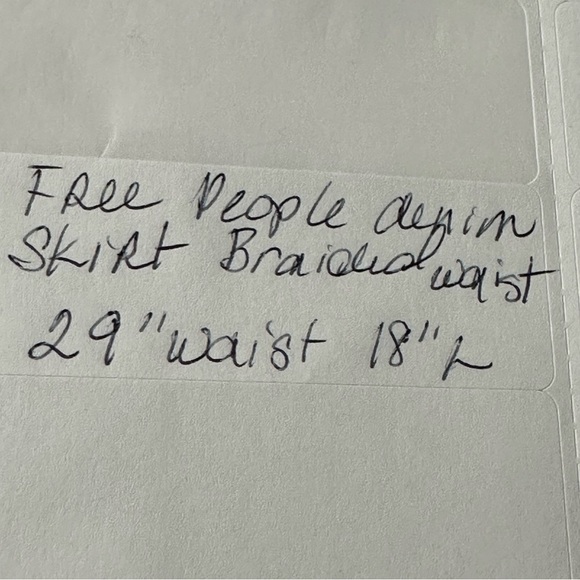 Free People denim
Skirt Braided waist
29" waist 18" L